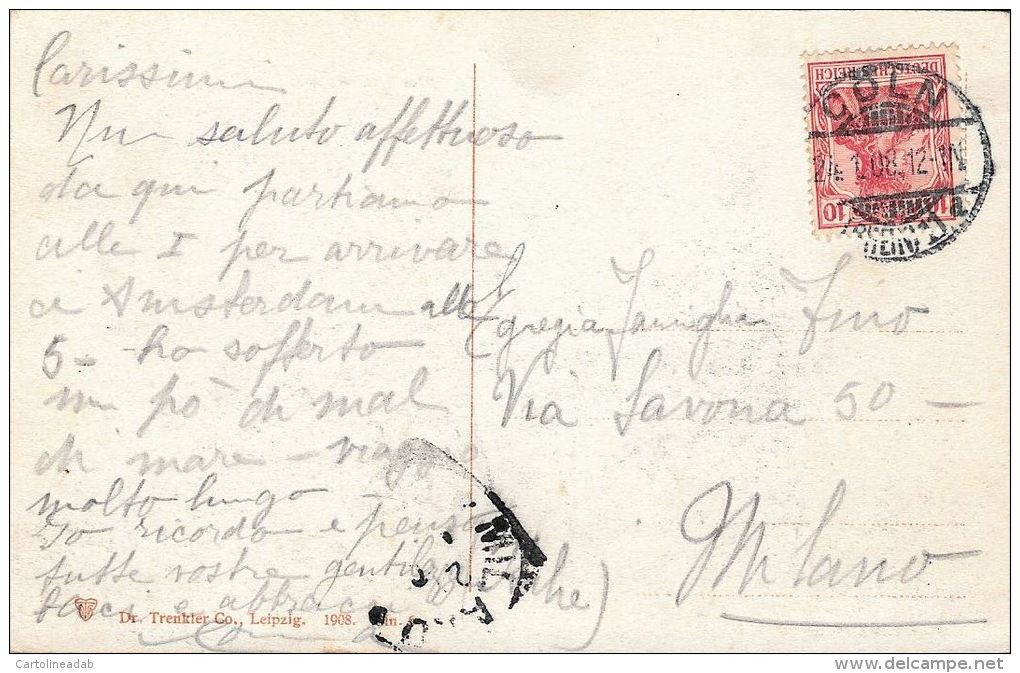 Carissimi
Un saluto affettuoso
da qui partiamo
alle 1 per arrivare
a Amsterdam alle
5 - ho sofferto
un pò di mal
di mare - viaggio
molto lungo
Io ricordo e penso
tutte vostre
baci e abbracci
Egregia Famiglia Fino
Via Savona 50 -
Milano
DEUTSCHES REICH
10
CÖLN
24.1.08.12-
(RHEIN) 1 a
MILANO
Dr. Trenkler Co., Leipzig. 1908.
Cartolineadab
delcampe.net